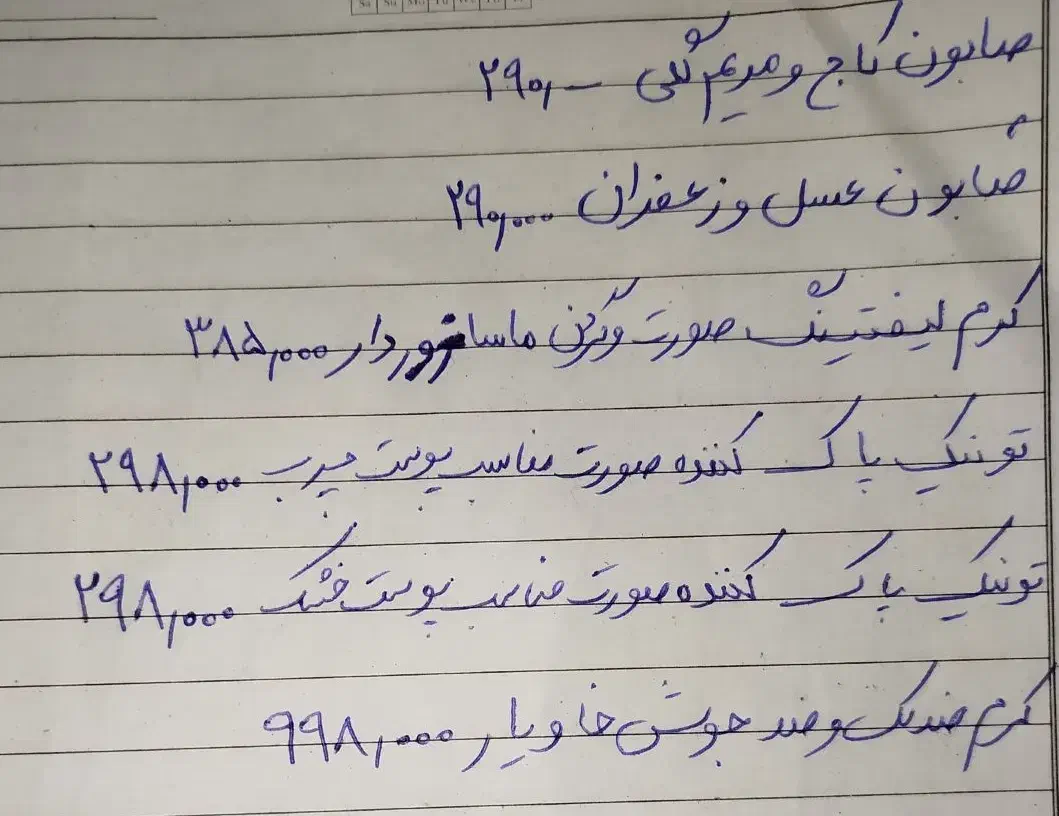 صابون کاج و مریم گلی ۲۹۰,—
صابون عسل و زعفران ۲۹۰,۰۰۰
کرم لیفتینگ صورت و گردن ماساژوردار ۳۸۵,۰۰۰
تونیک پاک کننده صورت مناسب پوست چرب ۲۹۸,۰۰۰
تونیک پاک کننده صورت مناسب پوست خشک ۲۹۸,۰۰۰
کرم ضدلک و ضد جوش خاویار ۹۹۸,۰۰۰